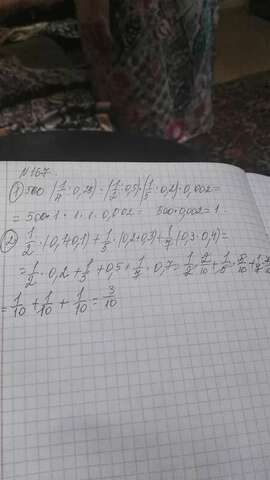 № 167
① 500 · (1/4 : 0,25) · (1/2 : 0,5) · (1/5 : 0,2) · 0,002 =
= 500 · 1 · 1 · 1 · 0,002 = 500 · 0,002 = 1
② 1/2 · (0,1+0,1) + 1/5 · (0,2+0,3) + 1/7 · (0,3+0,4) =
= 1/2 · 0,2 + 1/5 · 0,5 + 1/7 · 0,7 = 1/2 · 2/10 + 1/5 · 5/10 + 1/7
= 1/10 + 1/10 + 1/10 = 3/10